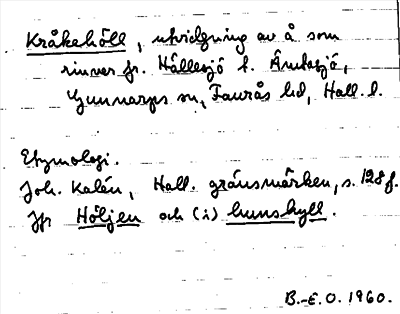 Kråkehöll, utvidgning av å som
rinner fr. Hållesjö t. Ämtasjö,
Gunnarps sn, Faurås hd, Hall. l.
Etymologi.
Joh. Kalén, Hall. gränsmärken, s. 128 f.
Jfr Höljen och (i) hunshyll.
B.-E. O. 1960.